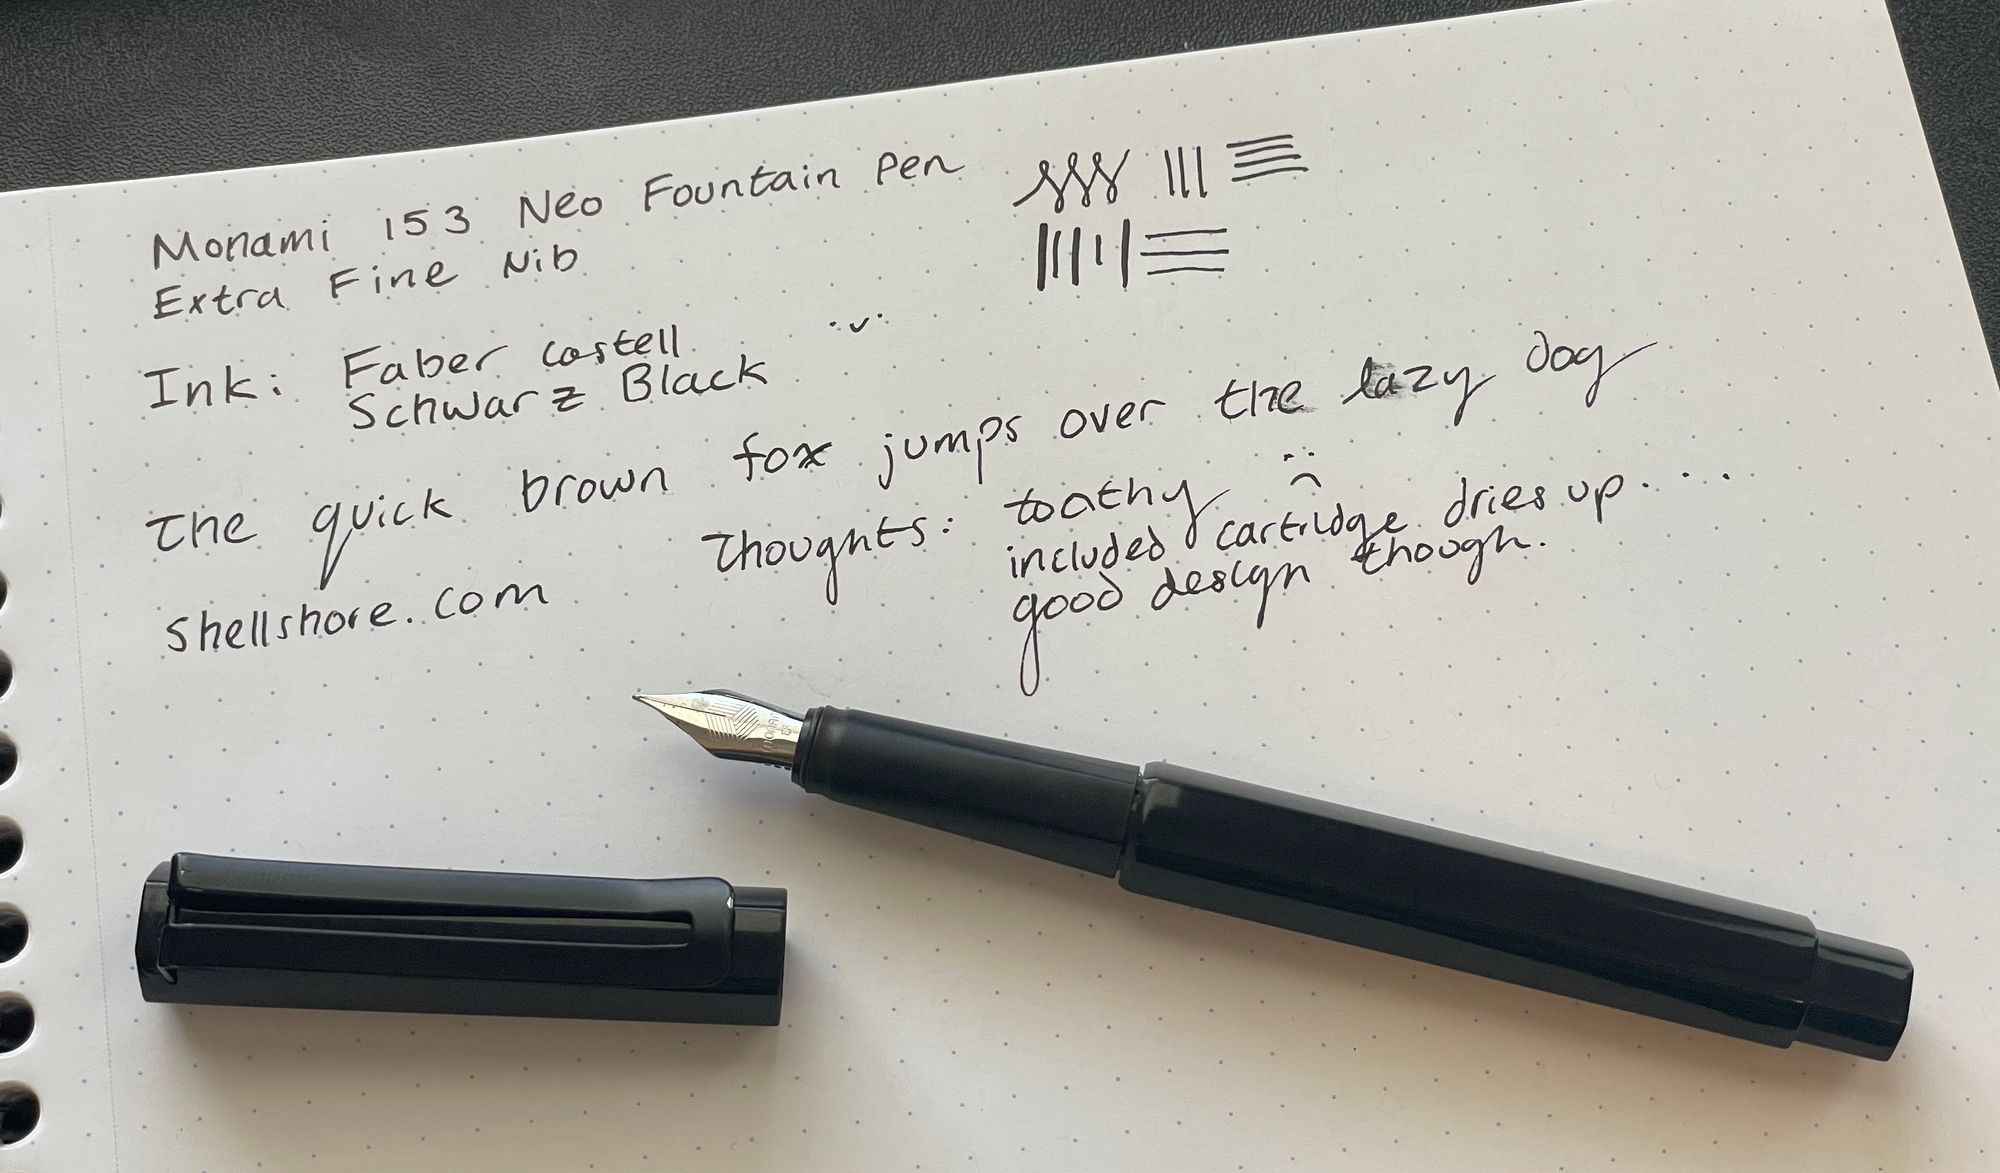 Monami 153 Neo Fountain Pen
Extra Fine Nib
Ink: Faber Castell
Schwarz Black
The quick brown fox jumps over the lazy dog
Thoughts: toothy
included cartridge dries up....
good design though.
shellshore.com